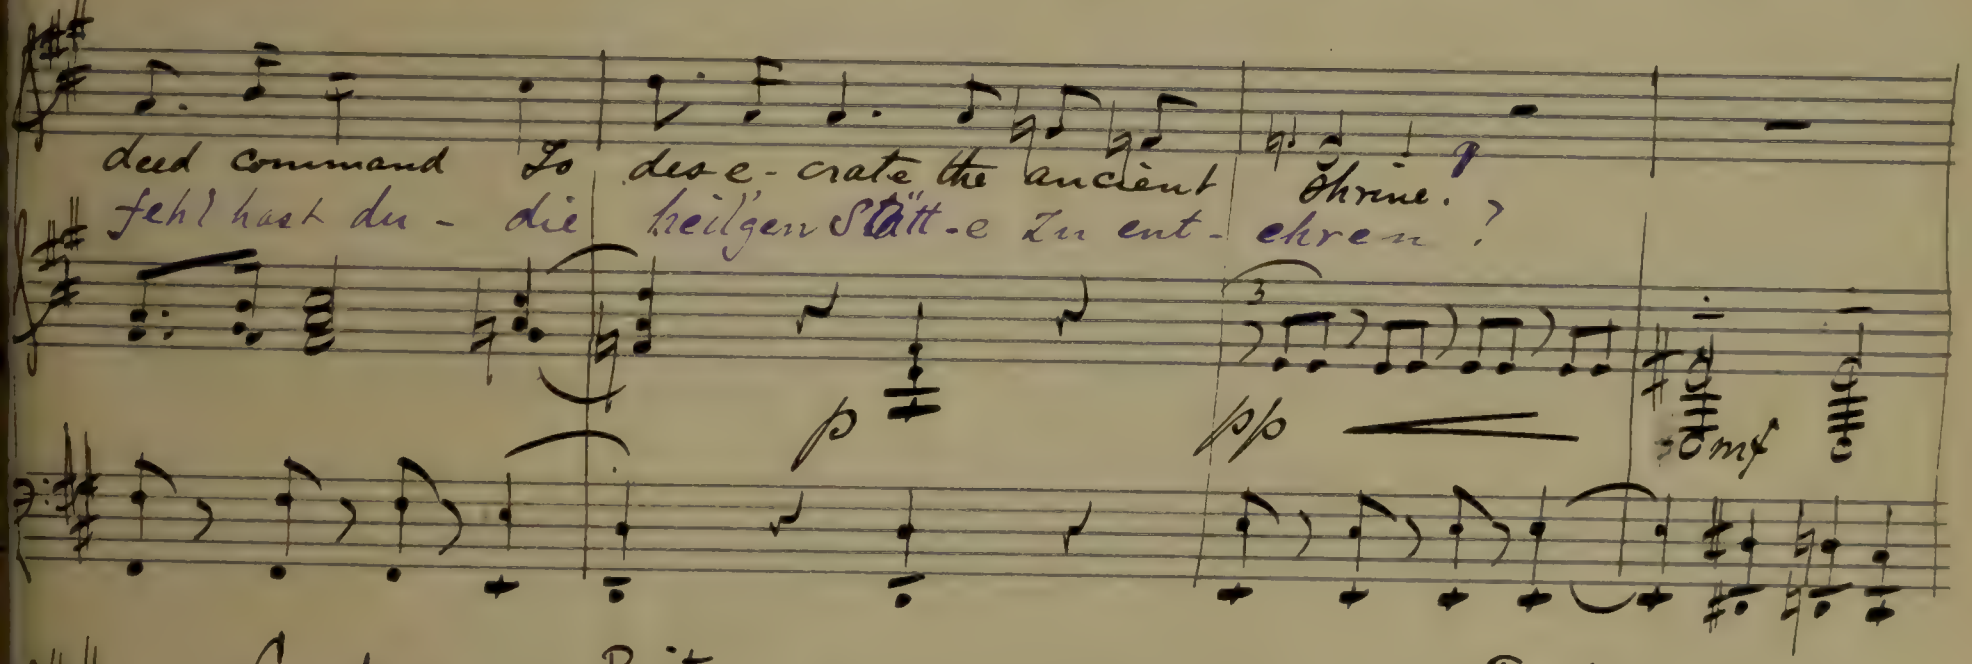 deed command To des-e-crate the ancient Shrine.
fehl hast du - die heil'gen Stätt-e zu ent-ehren?
3
p pp mf